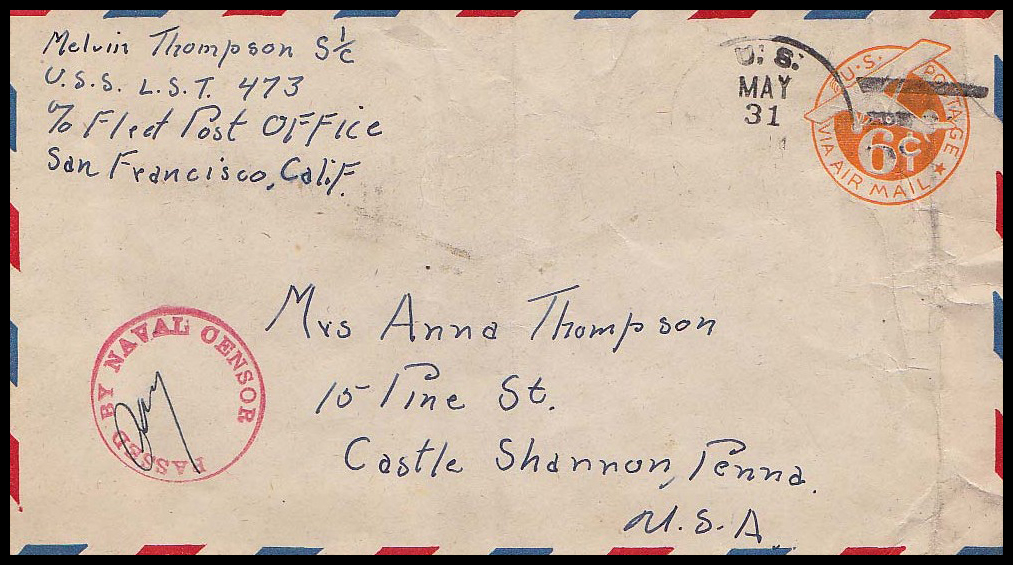 Melvin Thompson S 1/c
U.S.S. L.S.T. 473
c/o Fleet Post OFFice
San Francisco, Calif.
U.S.
MAY
31
U.S. POSTAGE
6¢
VIA AIR MAIL
Mrs Anna Thompson
15 Pine St.
Castle Shannon, Penna.
U.S.A.
PASSED BY NAVAL CENSOR